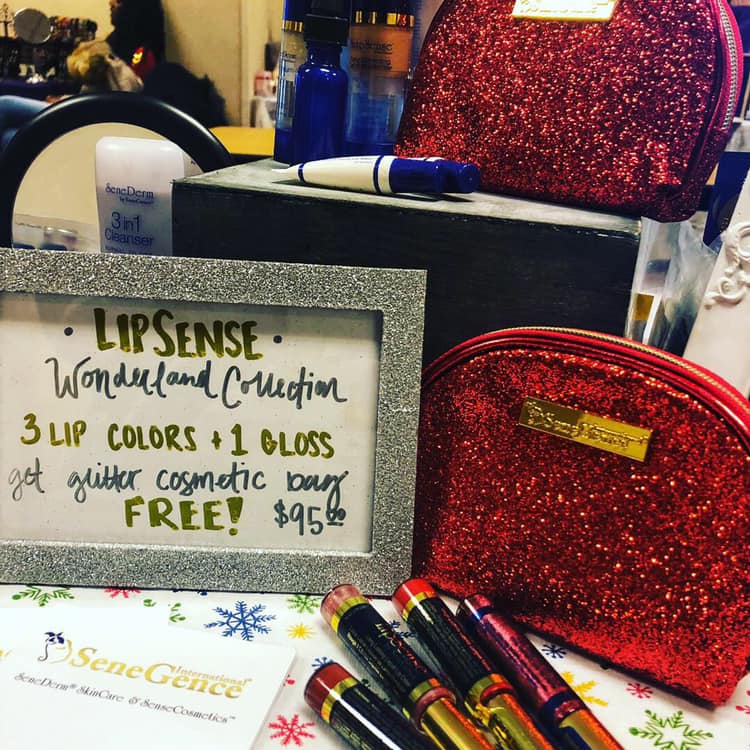 SeneDerm
by SeneGence
3 in 1
Cleanser
• LIPSENSE •
Wonderland Collection
3 LIP COLORS + 1 GLOSS
get glitter cosmetic bag
FREE! $95.00
SeneGence
International
SeneDerm® SkinCare & SenseCosmetics™
SeneGence
LipSense